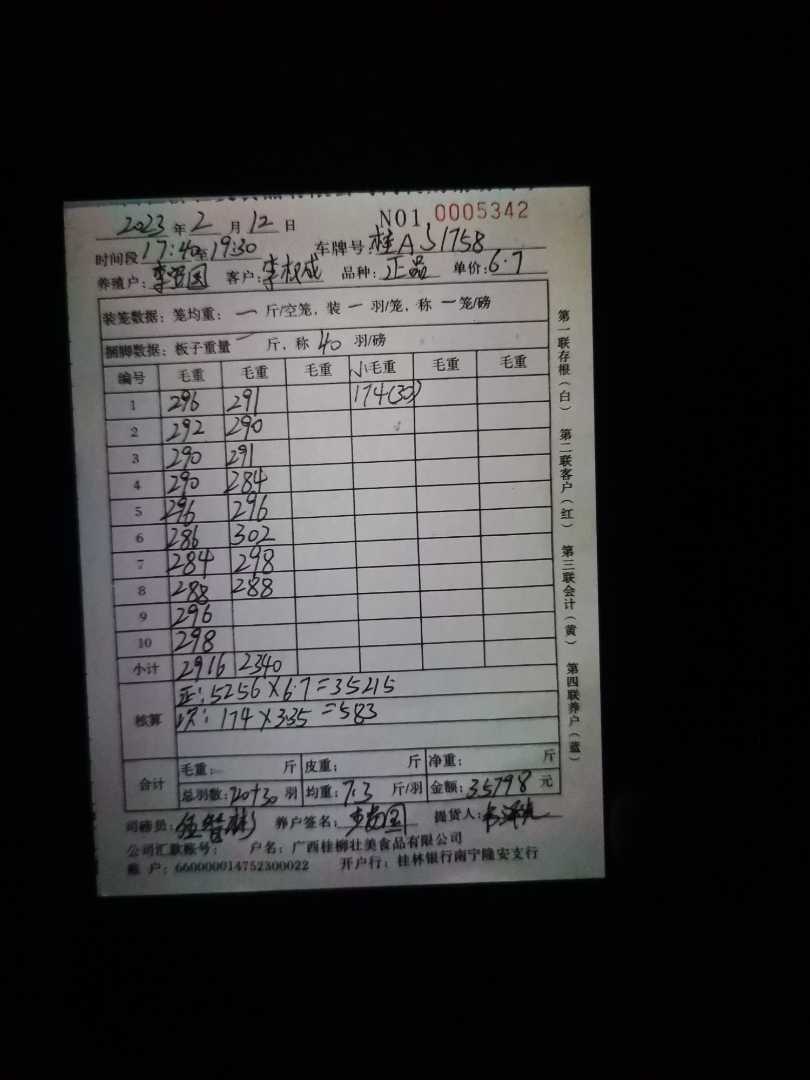 2023 年 2 月 12 日 NO1 0005342
时间段 17:40至19:30 车牌号:桂A
养殖户: 客户:李权成 品种:正品 单价:6.7
装笼数据:笼均重: 一 斤/空笼,装 一 羽/笼,称 一 笼/磅
捆脚数据:板子重量 一 斤,称 40 羽/磅
编号 毛重 毛重 毛重 小毛重 毛重 毛重
1 296 291 174(30)
2 292 290
3 290 291
4 290 284
5 296 296
6 286 302
7 284 298
8 288 288
9 296
10 298
小计 2916 2340
核算 正:5256×6.7=35215
次:174×3.35=583
合计 毛重: 斤 皮重: 斤 净重: 斤
总羽数:720+30 羽 均重:7.3 斤/羽 金额:35798 元
司磅员: 养户签名: 提货人:
公司汇款账号: 户名:广西桂柳壮美食品有限公司
账 户:660000014752300022 开户行:桂林银行南宁隆安支行
第一联存根(白) 第二联客户(红) 第三联会计(黄) 第四联养户(蓝)